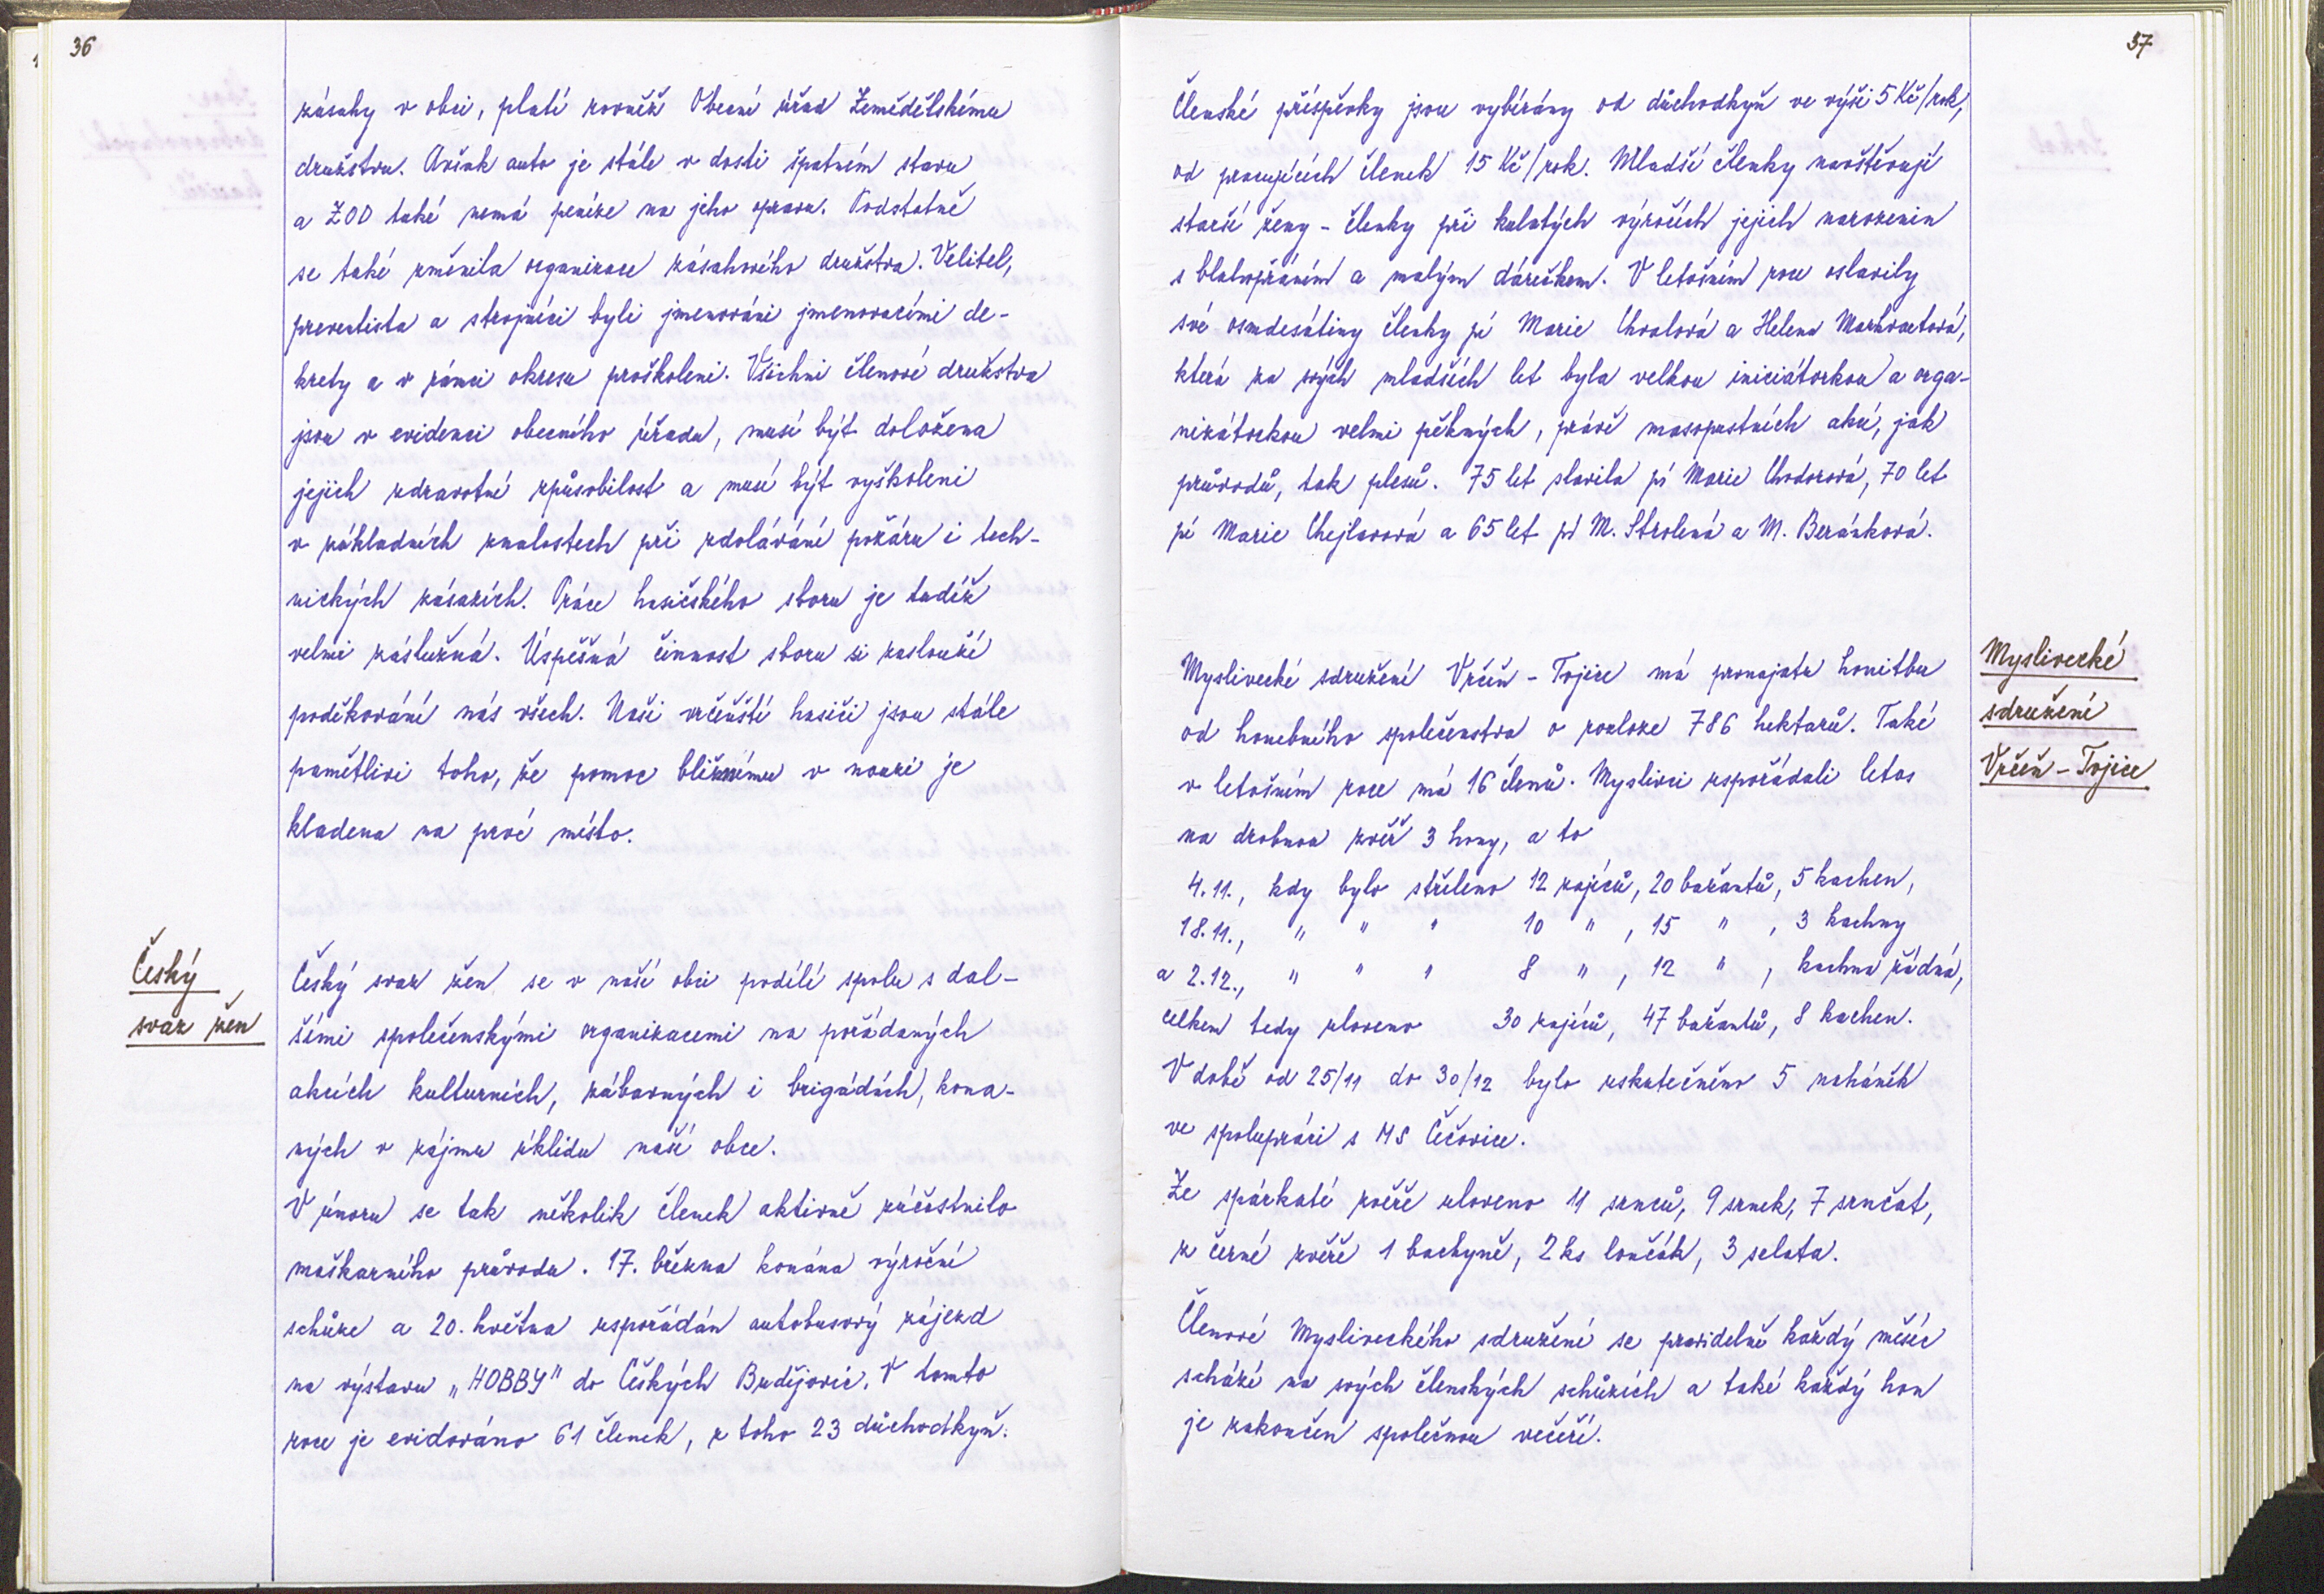 36
zásahy v obci, platí rovněž Obecní úřad Zemědělskému
družstvu. Avšak auto je stále v dosti špatném stavu
a ZOD také nemá peníze na jeho opravu. Podstatně
se také změnila organizace zásahového družstva. Velitel,
preventista a strojníci byli jmenováni jmenovacími de-
krety a v rámci okresu proškoleni. Všichni členové družstva
jsou v evidenci obecního úřadu, musí být doložena
jejich zdravotní způsobilost a musí být vyškoleni
v základních znalostech při zdolávání požáru i tech-
nických zásazích. Práce hasičského sboru je tudíž
velmi záslužná. Úspěšná činnost sboru si zaslouží
poděkování nás všech. Naši vrčeňští hasiči jsou stále
pamětlivi toho, že pomoc bližnímu v nouzi je
kladena na prvé místo.
Český
svaz žen
Český svaz žen se v naší obci podílí spolu s dal-
šími společenskými organizacemi na pořádaných
akcích kulturních, zábavných i brigádách, kona-
ných v zájmu úklidu naší obce.
V únoru se tak několik členek aktivně zúčastnilo
maškarního průvodu. 17. března konána výroční
schůze a 20. května uspořádán autobusový zájezd
na výstavu „HOBBY" do Českých Budějovic. V tomto
roce je evidováno 61 členek, z toho 23 důchodkyň.
37
Členské příspěvky jsou vybírány od důchodkyň ve výši 5 Kč/rok,
od pracujících členek 15 Kč/rok. Mladší členky navštěvují
starší ženy - členky při kulatých výročích jejich narozenin
s blahopřáním a malým dárečkem. V letošním roce oslavily
své osmdesátiny členky pí Marie Chvalová a Helena Markvartová,
která za svých mladších let byla velkou iniciátorkou a orga-
nizátorkou velmi pěkných, právě masopustních akcí, jak
průvodů, tak plesů. 75 let slavila pí Marie Chodorová, 70 let
pí Marie Chejlavová a 65 let pí M. Strolená a M. Beránková.
Myslivecké
sdružení
Vrčeň - Tojice
Myslivecké sdružení Vrčeň - Tojice má pronajatu honitbu
od honebního společenstva o rozloze 786 hektarů. Také
v letošním roce má 16 členů. Myslivci uspořádali letos
na drobnou zvěř 3 hony, a to
4.11., kdy bylo střeleno 12 zajíců, 20 bažantů, 5 kachen,
18.11., " " " 10 " , 15 " , 3 kachny
a 2.12., " " " 8 " , 12 " , kachna žádná,
celkem tedy uloveno 30 zajíců, 47 bažantů, 8 kachen.
V době od 25/11 do 30/12 bylo uskutečněno 5 naháněk
ve spolupráci s MS Čečovice.
Ze spárkaté zvěře uloveno 11 srnců, 9 srnek, 7 srnčat,
z černé zvěře 1 bachyně, 2 ks lončák, 3 selata.
Členové Mysliveckého sdružení se pravidelně každý měsíc
schází na svých členských schůzích a také každý hon
je zakončen společnou večeří.